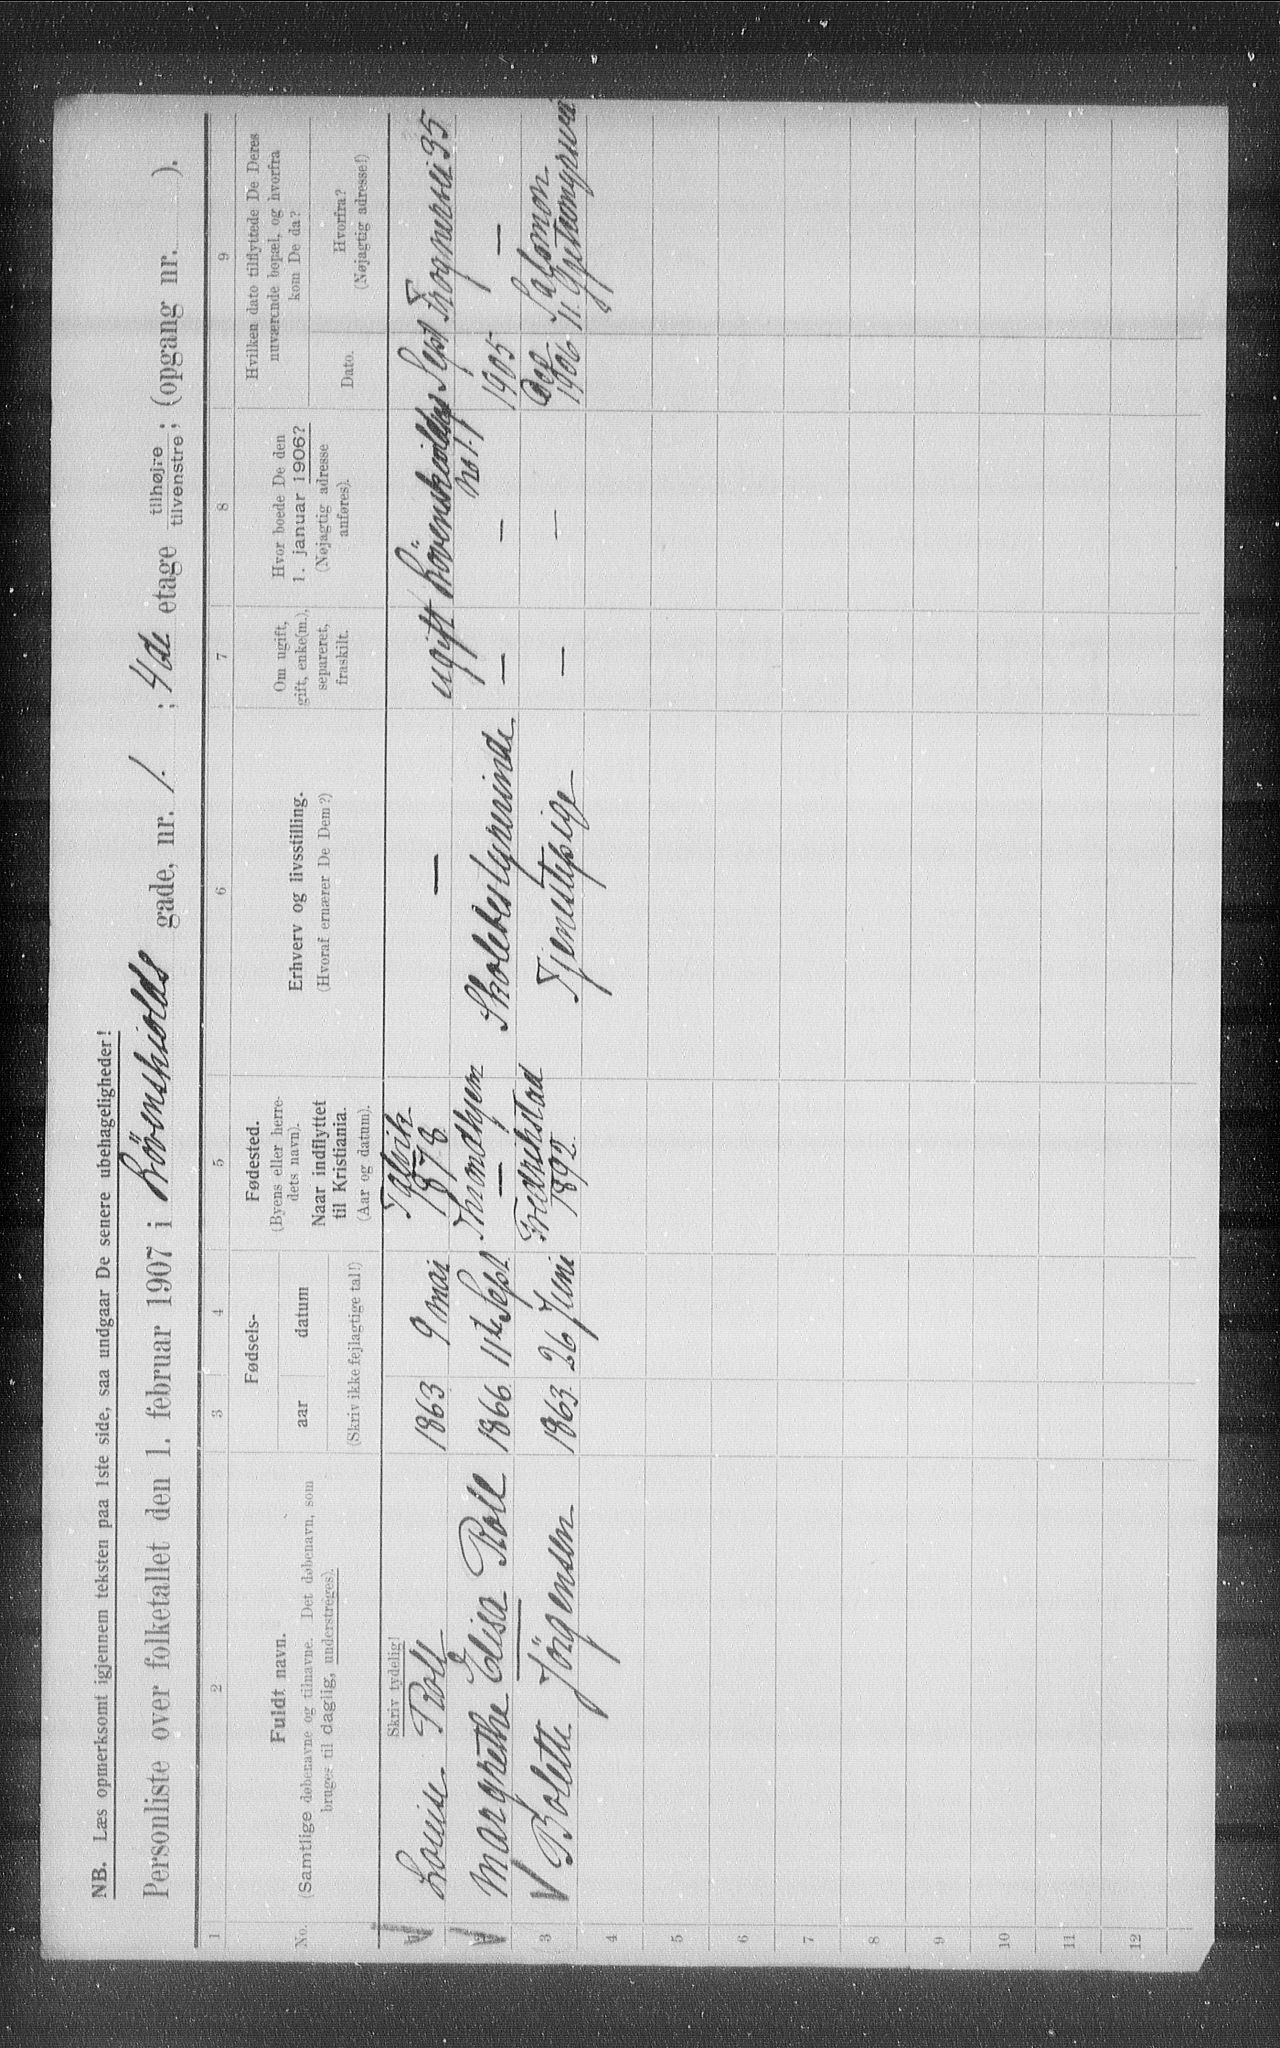 NB. Læs opmerksomt igjennem teksten paa 1ste side, saa undgaar De senere ubehageligheder!
Personliste over folketallet den 1. februar 1907 i Lövenskiolds gade, nr. 1. ; 4de etage tilhøjre tilvenstre; (opgang nr. ).
1 2 3 4 5 6 7 8 9
No.
Fuldt navn.
(Samtlige døbenavne og tilnavne. Det døbenavn, som
bruges til daglig, understreges).
Fødsels-
aar datum
(Skriv ikke fejlagtige tal!)
Fødested.
(Byens eller herre-
dets navn).
Naar indflyttet
til Kristiania.
(Aar og datum).
Erhverv og livsstilling.
(Hvoraf ernærer De Dem?)
Om ugift,
gift, enke(m.),
separeret,
fraskilt.
Hvor boede De den
1. januar 1906?
(Nøjagtig adresse
anføres).
Hvilken dato tilflyttede De Deres
nuværende bopæl, og hvorfra
kom De da?
Dato.
Hvorfra?
(Nøjagtig adresse!)
Skriv tydelig!
Louise Roll 1863 9 mai Talvik 1878 — ugift Lövenskiolds no 1. Sept Frognervei 35
Margrethe Elisa Roll 1866 11te Sept Throndhjem — Skolebestyrerinde — — 1905 —
3 Bolette Jörgensen 1863 26 Juni Fredrikstad 1892. Tjenestepige — — 1906 Salomon
4
5
6
7
8
9
10
11
12